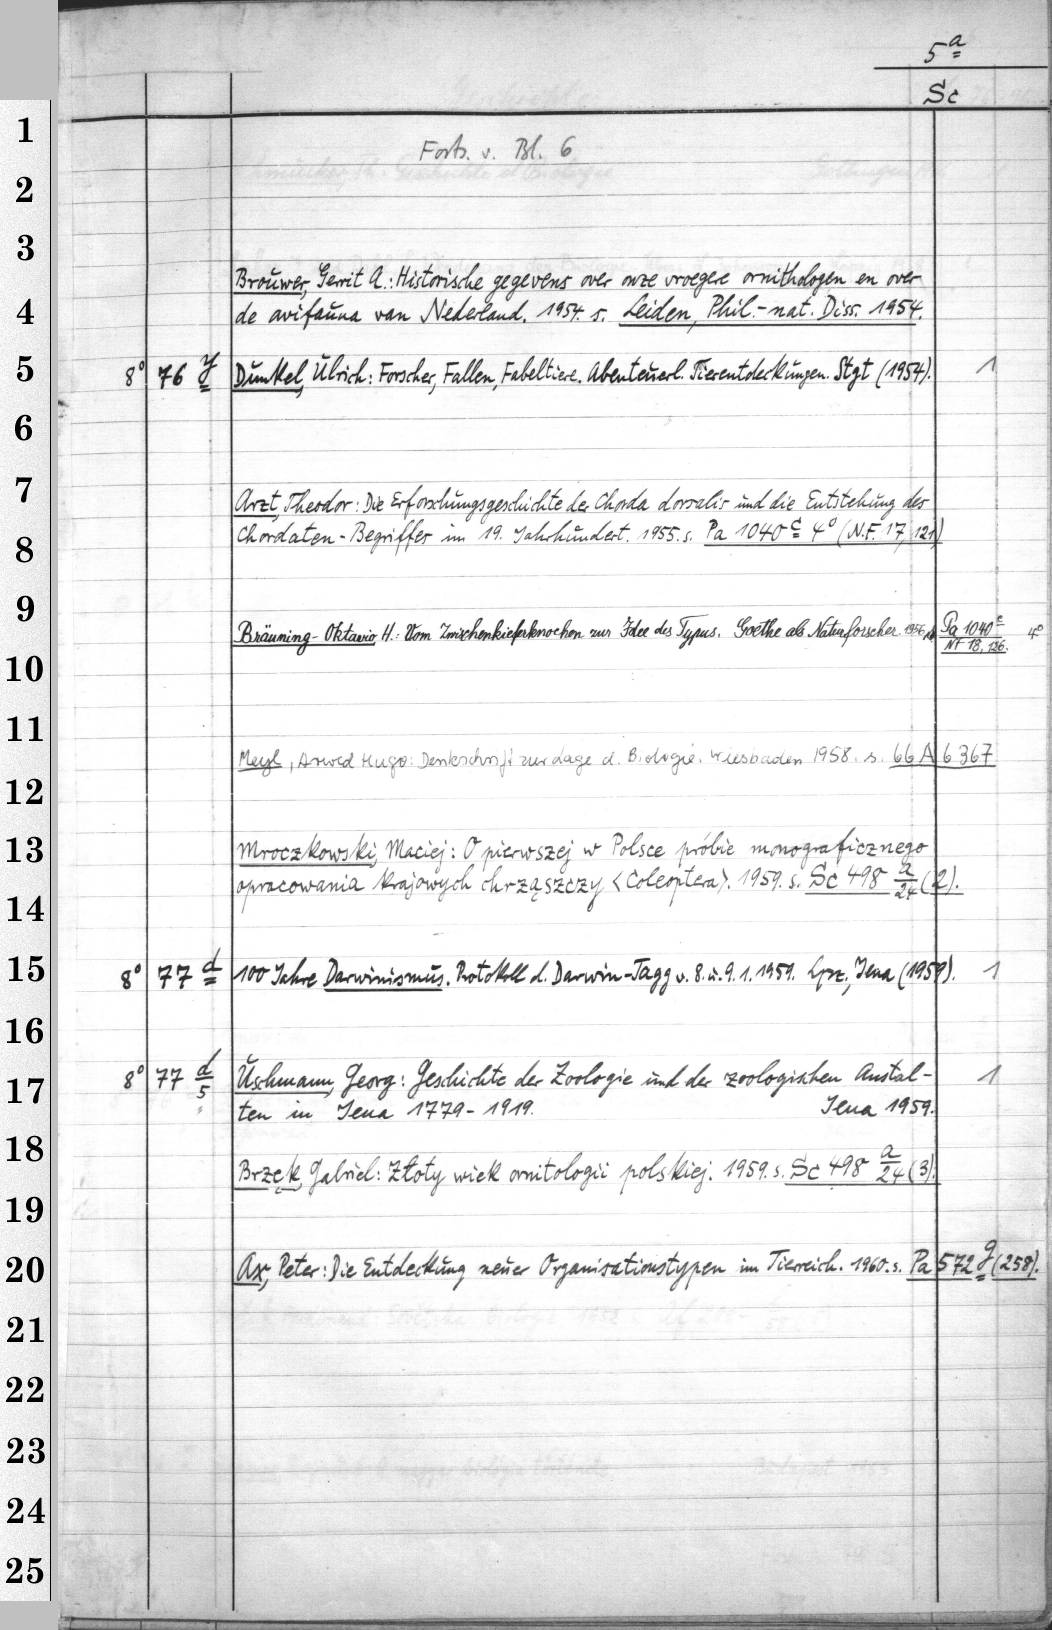 5 a
Sc
1
Forts. v. Bl. 6
2
3
Brouwer, Gerrit A.: Historische gegevens over onze vroegere ornithologen en over
4
de avifauna van Nederland. 1954. s. Leiden, Phil.-nat. Diss. 1954.
5
8° 76 y Dunkel, Ulrich: Forscher, Fallen, Fabeltiere. Abenteuerl. Tierentdeckungen. Stgt (1954). 1
6
7
Arzt, Theodor: Die Erforschungsgeschichte der Chorda dorsalis und die Entstehung des
8
Chordaten-Begriffes im 19. Jahrhundert. 1955. s. Pa 1040 c 4° (N.F. 17, 121)
9
Bräuning-Oktavio, H.: Vom Zwischenkieferknochen zur Idee des Typus. Goethe als Naturforscher. 1956. s. Pa 1040 c 4°
NF 18, 126.
10
11
Meyl, Arwed Hugo: Denkschrift zur Lage d. Biologie. Wiesbaden 1958. s. 66 A 6367
12
13
Mroczkowski, Maciej: O pierwszej w Polsce próbie monograficznego
14
opracowania krajowych chrząszczy <Coleoptera>. 1959. s. Sc 498 a/24 (2).
15
8° 77 d 100 Jahre Darwinismus. Protokoll d. Darwin-Tagg v. 8. u. 9. 1. 1959. Lpz., Jena (1959). 1
16
17
8° 77 d/5 Uschmann, Georg: Geschichte der Zoologie und der zoologischen Anstal- 1
ten in Jena 1779-1919. Jena 1959.
18
Brzęk, Gabriel: Złoty wiek ornitologii polskiej. 1959. s. Sc 498 a/24 (3).
19
20
Ax, Peter: Die Entdeckung neuer Organisationstypen im Tierreich. 1960. s. Pa 572 g (258).
21
22
23
24
25